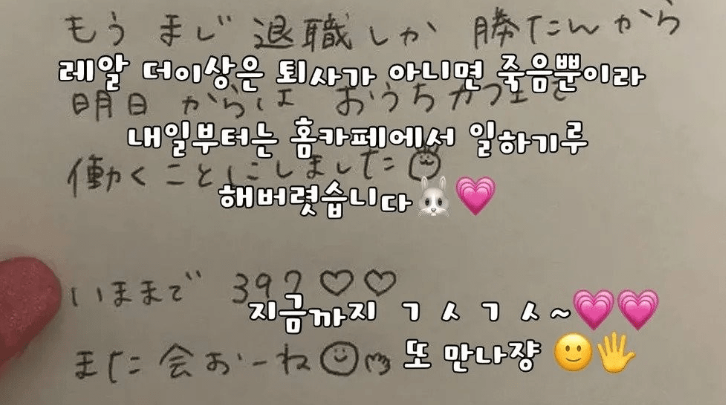 もう まじ 退職しか 勝たんから
레알 더이상은 퇴사가 아니면 죽음뿐이라
明日 からは おうちカフェで
내일부터는 홈카페에서 일하기루
働くことにしました
해버렸습니다🐰💗
いままで 39? ♡♡
지금까지 ㄱㅅㄱㅅ~💗💗
また 会おーね
또 만나쟝 🙂🖐